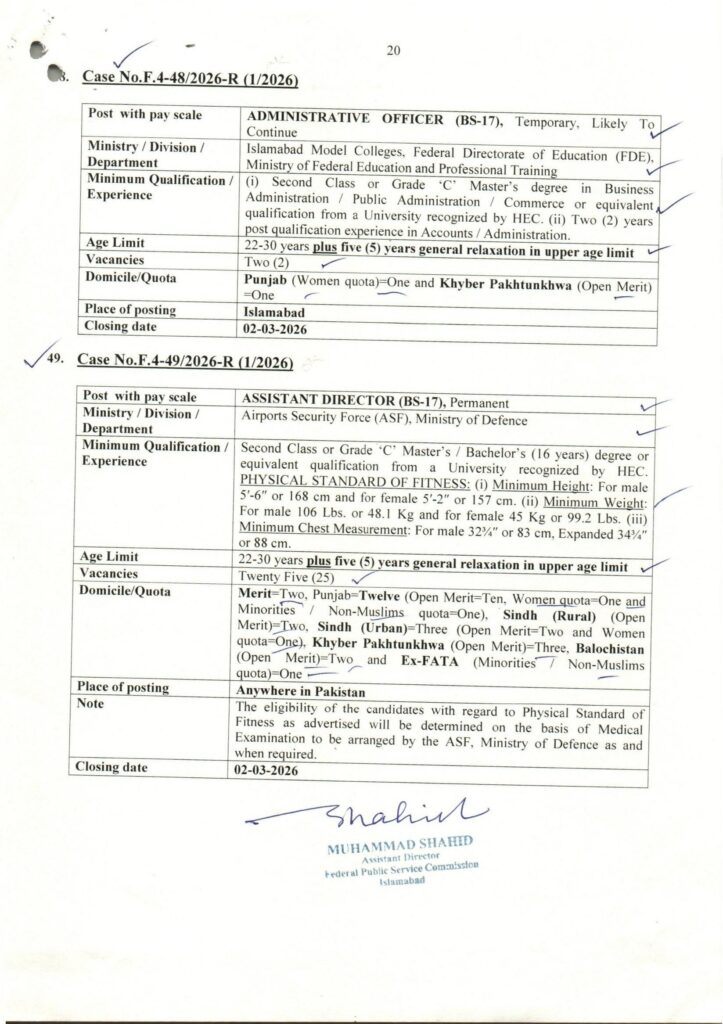 20
8. Case No.F.4-48/2026-R (1/2026)
Post with pay scale
ADMINISTRATIVE OFFICER (BS-17), Temporary, Likely To
Continue
Ministry / Division /
Department
Islamabad Model Colleges, Federal Directorate of Education (FDE),
Ministry of Federal Education and Professional Training
Minimum Qualification /
Experience
(i) Second Class or Grade ‘C’ Master’s degree in Business
Administration / Public Administration / Commerce or equivalent
qualification from a University recognized by HEC. (ii) Two (2) years
post qualification experience in Accounts / Administration.
Age Limit
22-30 years plus five (5) years general relaxation in upper age limit
Vacancies
Two (2)
Domicile/Quota
Punjab (Women quota)=One and Khyber Pakhtunkhwa (Open Merit)
=One
Place of posting
Islamabad
Closing date
02-03-2026
49. Case No.F.4-49/2026-R (1/2026)
Post with pay scale
ASSISTANT DIRECTOR (BS-17), Permanent
Ministry / Division /
Department
Airports Security Force (ASF), Ministry of Defence
Minimum Qualification /
Experience
Second Class or Grade ‘C’ Master’s / Bachelor’s (16 years) degree or
equivalent qualification from a University recognized by HEC.
PHYSICAL STANDARD OF FITNESS: (i) Minimum Height: For male
5′-6″ or 168 cm and for female 5′-2″ or 157 cm. (ii) Minimum Weight:
For male 106 Lbs. or 48.1 Kg and for female 45 Kg or 99.2 Lbs. (iii)
Minimum Chest Measurement: For male 32¾″ or 83 cm, Expanded 34¾″
or 88 cm.
Age Limit
22-30 years plus five (5) years general relaxation in upper age limit
Vacancies
Twenty Five (25)
Domicile/Quota
Merit=Two, Punjab=Twelve (Open Merit=Ten, Women quota=One and
Minorities / Non-Muslims quota=One), Sindh (Rural) (Open
Merit)=Two, Sindh (Urban)=Three (Open Merit=Two and Women
quota=One), Khyber Pakhtunkhwa (Open Merit)=Three, Balochistan
(Open Merit)=Two and Ex-FATA (Minorities / Non-Muslims
quota)=One
Place of posting
Anywhere in Pakistan
Note
The eligibility of the candidates with regard to Physical Standard of
Fitness as advertised will be determined on the basis of Medical
Examination to be arranged by the ASF, Ministry of Defence as and
when required.
Closing date
02-03-2026
Shahid
MUHAMMAD SHAHID
Assistant Director
Federal Public Service Commission
Islamabad